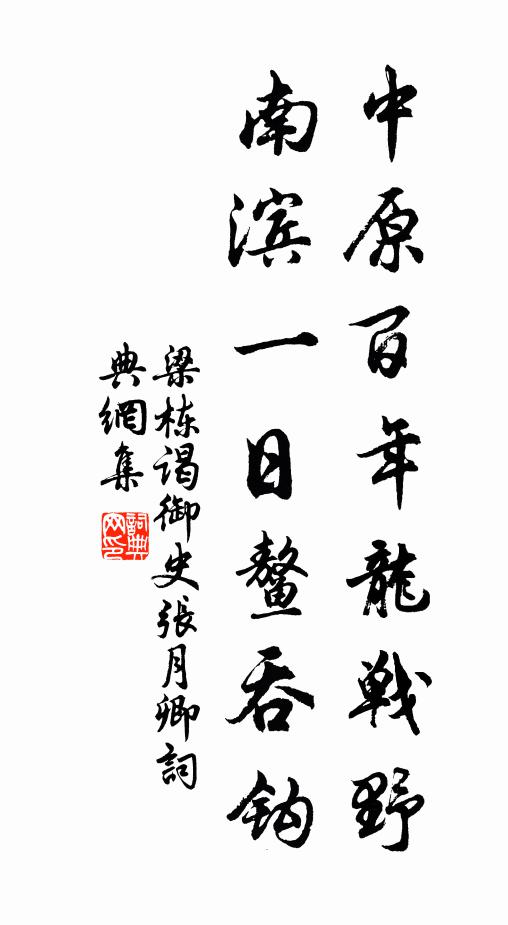 中原百年龍戦野
南滨一日鳌吞钩
梁栋谒御史張月卿詞
典網集
詞典网印